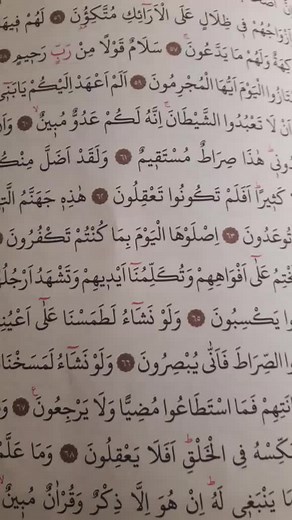 اَزْوَاجُهُمْ فٖي ظِلَالٍ عَلَى الْاَرَٓائِكِ مُتَّكِؤُ۫نَ ﴿٥٦﴾ لَهُمْ فٖيهَا
كِهَةٌ وَلَهُمْ مَا يَدَّعُونَ ﴿٥٧﴾ سَلَامٌ قَوْلًا مِنْ رَبٍّ رَحٖيمٍ
تَازُوا الْيَوْمَ اَيُّهَا الْمُجْرِمُونَ ﴿٥٩﴾ اَلَمْ اَعْهَدْ اِلَيْكُمْ يَا بَنٖٓي
اَنْ لَا تَعْبُدُوا الشَّيْطَانَۚ اِنَّهُ لَكُمْ عَدُوٌّ مُبٖينٌۙ ﴿٦٠﴾ وَاَنِ
دُونٖيؕ هٰذَا صِرَاطٌ مُسْتَقٖيمٌ ﴿٦١﴾ وَلَقَدْ اَضَلَّ مِنْكُ
كَثٖيرًاؕ اَفَلَمْ تَكُونُوا تَعْقِلُونَ ﴿٦٢﴾ هٰذِهٖ جَهَنَّمُ الَّتٖ
تُوعَدُونَ ﴿٦٣﴾ اِصْلَوْهَا الْيَوْمَ بِمَا كُنْتُمْ تَكْفُرُونَ
خْتِمُ عَلٰٓى اَفْوَاهِهِمْ وَتُكَلِّمُنَٓا اَيْدٖيهِمْ وَتَشْهَدُ اَرْجُلُهُ
وا يَكْسِبُونَ ﴿٦٥﴾ وَلَوْ نَشَٓاءُ لَطَمَسْنَا عَلٰٓى اَعْيُنِ
وا الصِّرَاطَ فَاَنّٰى يُبْصِرُونَ ﴿٦٦﴾ وَلَوْ نَشَٓاءُ لَمَسَخْنَا
انَتِهِمْ فَمَا اسْتَطَاعُوا مُضِيًّا وَلَا يَرْجِعُونَ۟ ﴿٦٧﴾ وَ
نَكِّسْهُ فِي الْخَلْقِؕ اَفَلَا يَعْقِلُونَ ﴿٦٨﴾ وَمَا عَلَّمْ
مَا يَنْبَغٖي لَهُؕ اِنْ هُوَ اِلَّا ذِكْرٌ وَقُرْاٰنٌ مُبٖينٌۙ